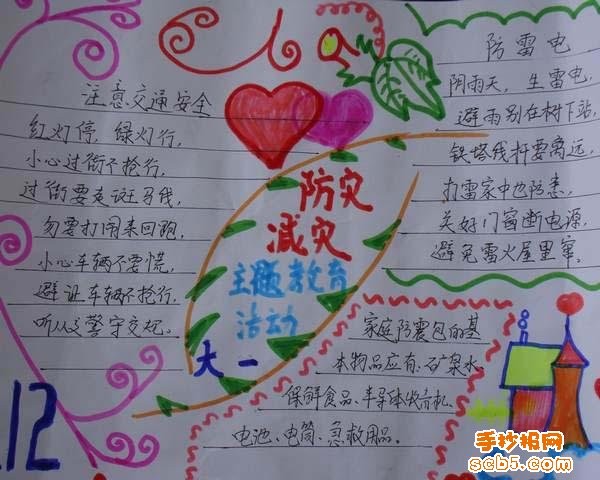 注意交通安全
红灯停，绿灯行，
小心过街不抢行，
过街要走斑马线，
勿要打闹来回跑，
小心车辆不要慌，
避让车辆不抢行，
听从交警守交规。
.12
防灾
减灾
主题教育
活动
大一
防雷电
阴雨天，生雷电，
避雨别在树下站，
铁塔线杆要离远，
打雷家中也防患，
关好门窗断电源，
避免雷火屋里窜。
家庭防震包的基
本物品应有：矿泉水、
保鲜食品、半导体收音机、
电池、电筒、急救用品。
手抄报网
scb5.com